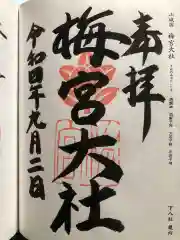 奉拝
梅宮大社
令和四年九月二日
山城国 梅宮大社